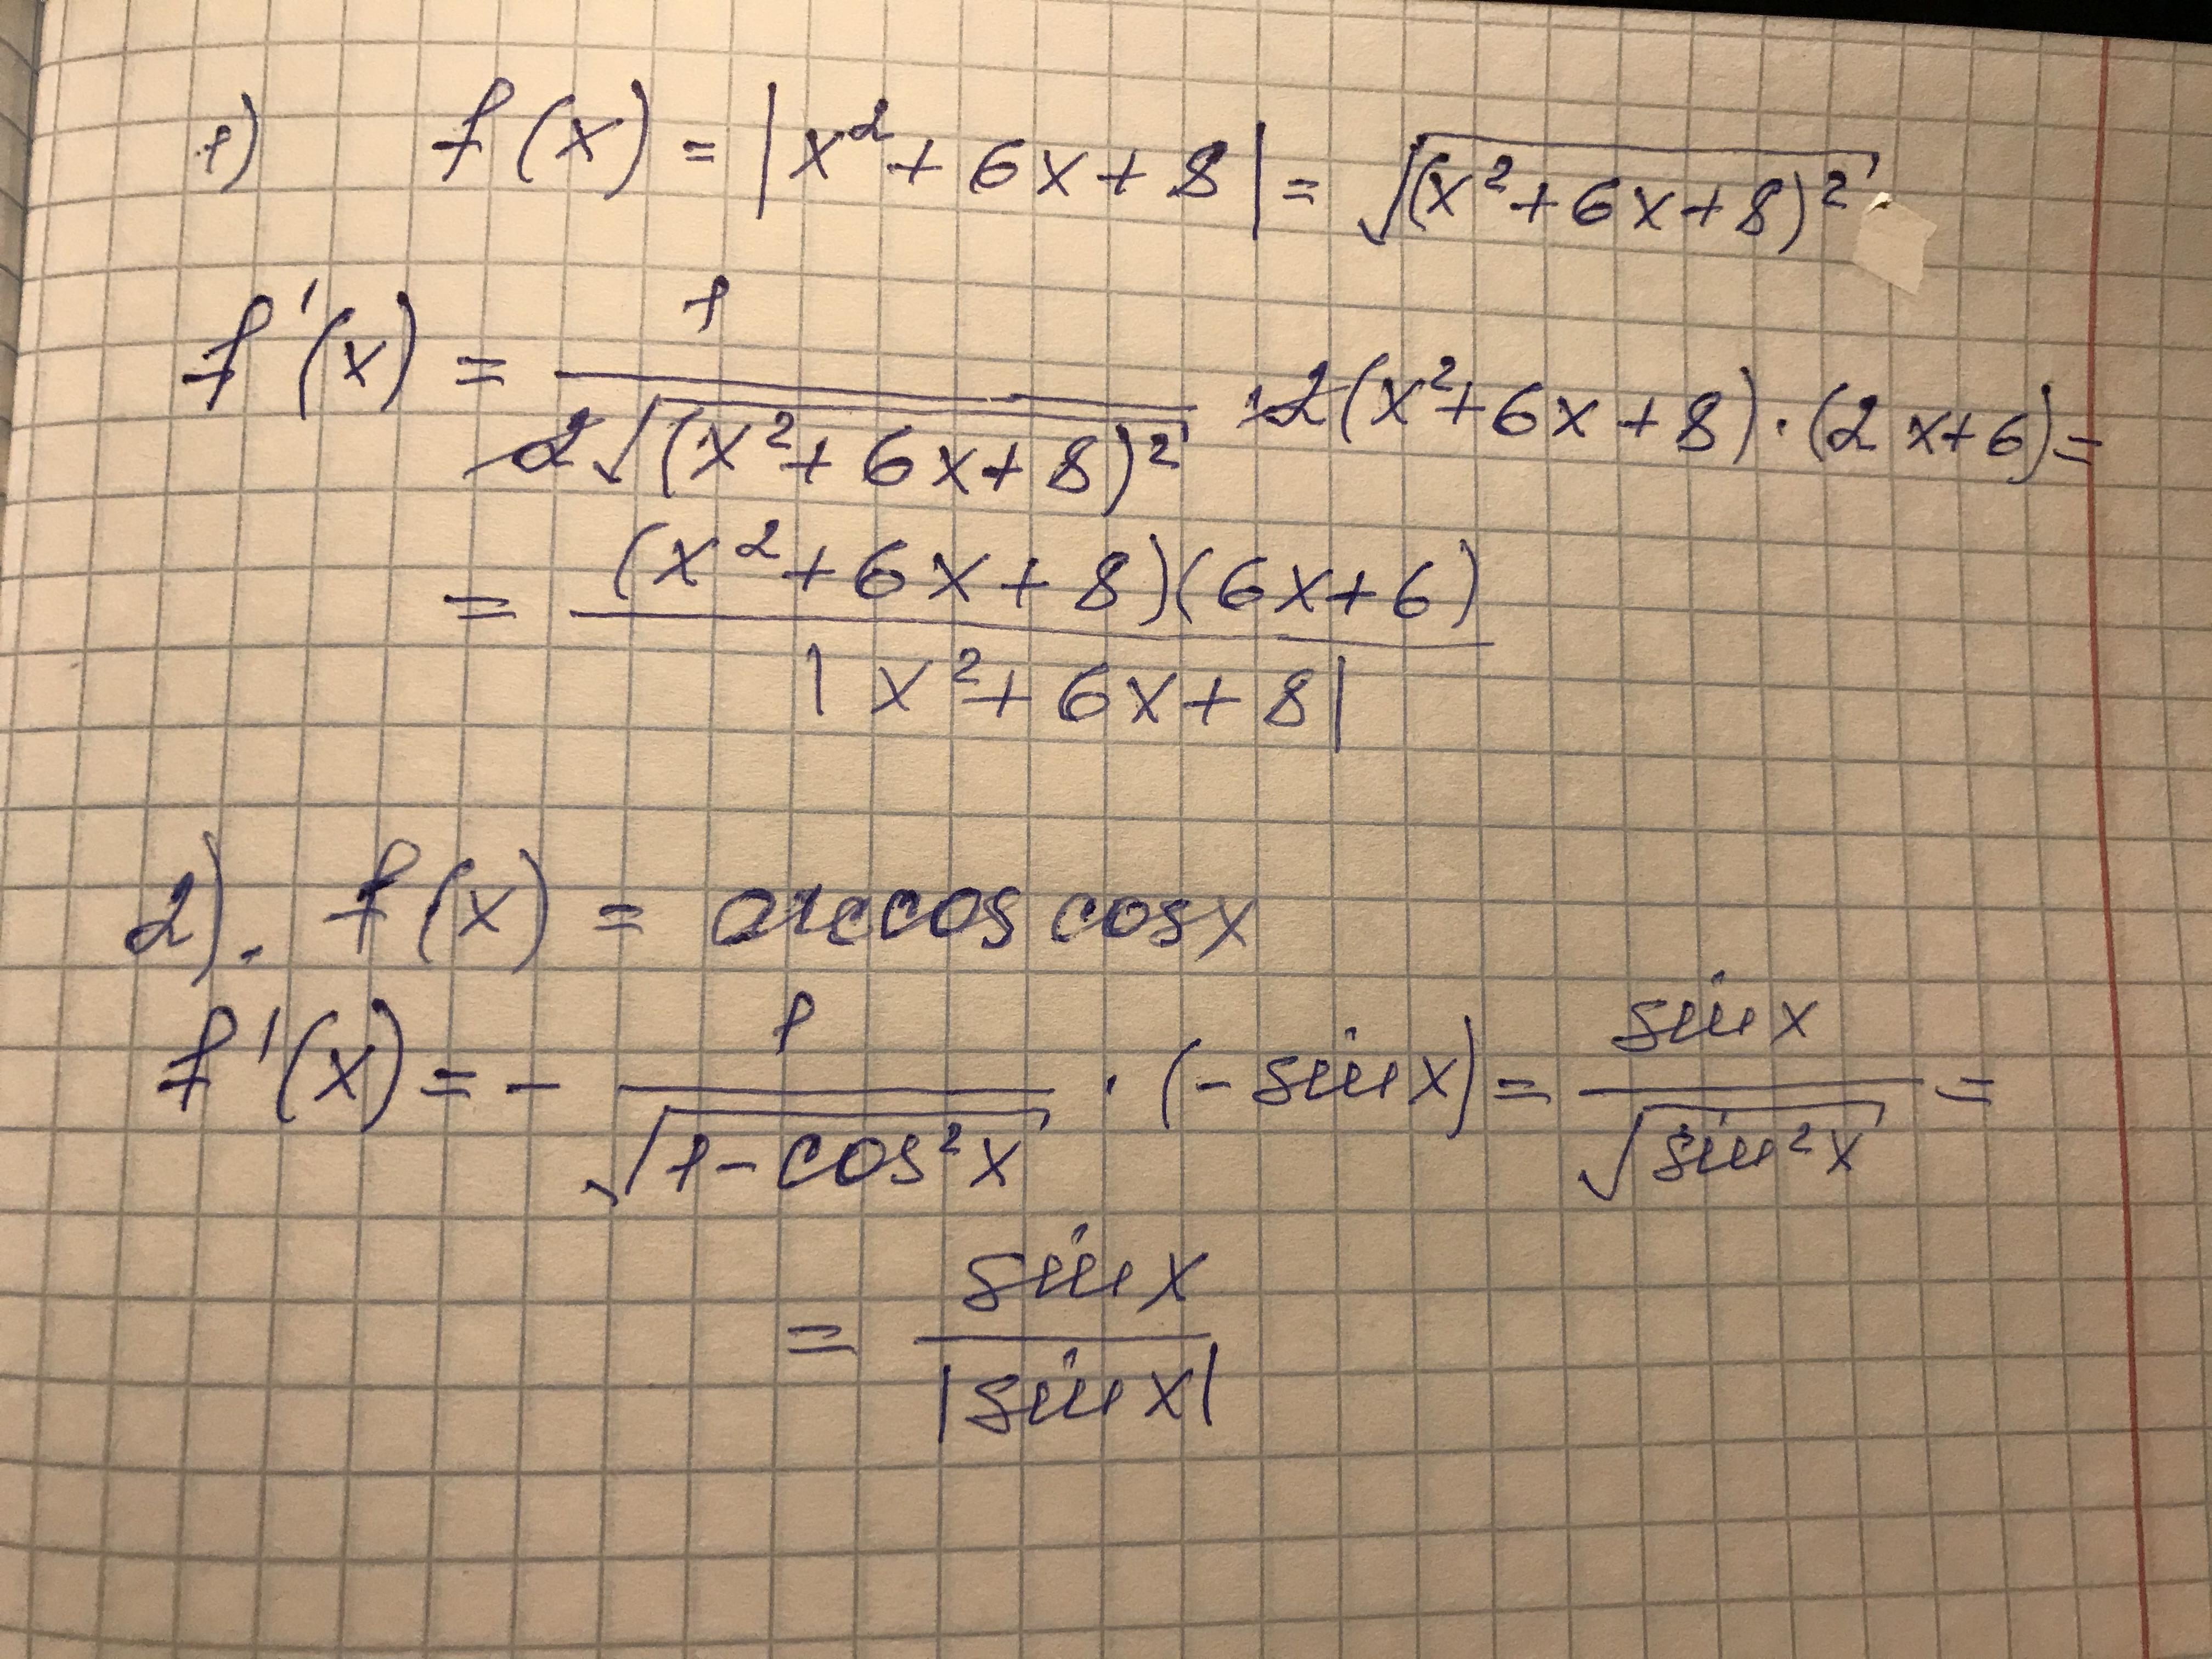 1) f(x) = |x² + 6x + 8| = √(x² + 6x + 8)²
f'(x) = 1 / 2√(x² + 6x + 8)² · 2(x² + 6x + 8) · (2x + 6) =
= (x² + 6x + 8)(6x + 6) / |x² + 6x + 8|
2). f(x) = arccos cosx
f'(x) = - 1 / √1 - cos²x · (- sin x) = sin x / √sin²x =
= sin x / |sin x|